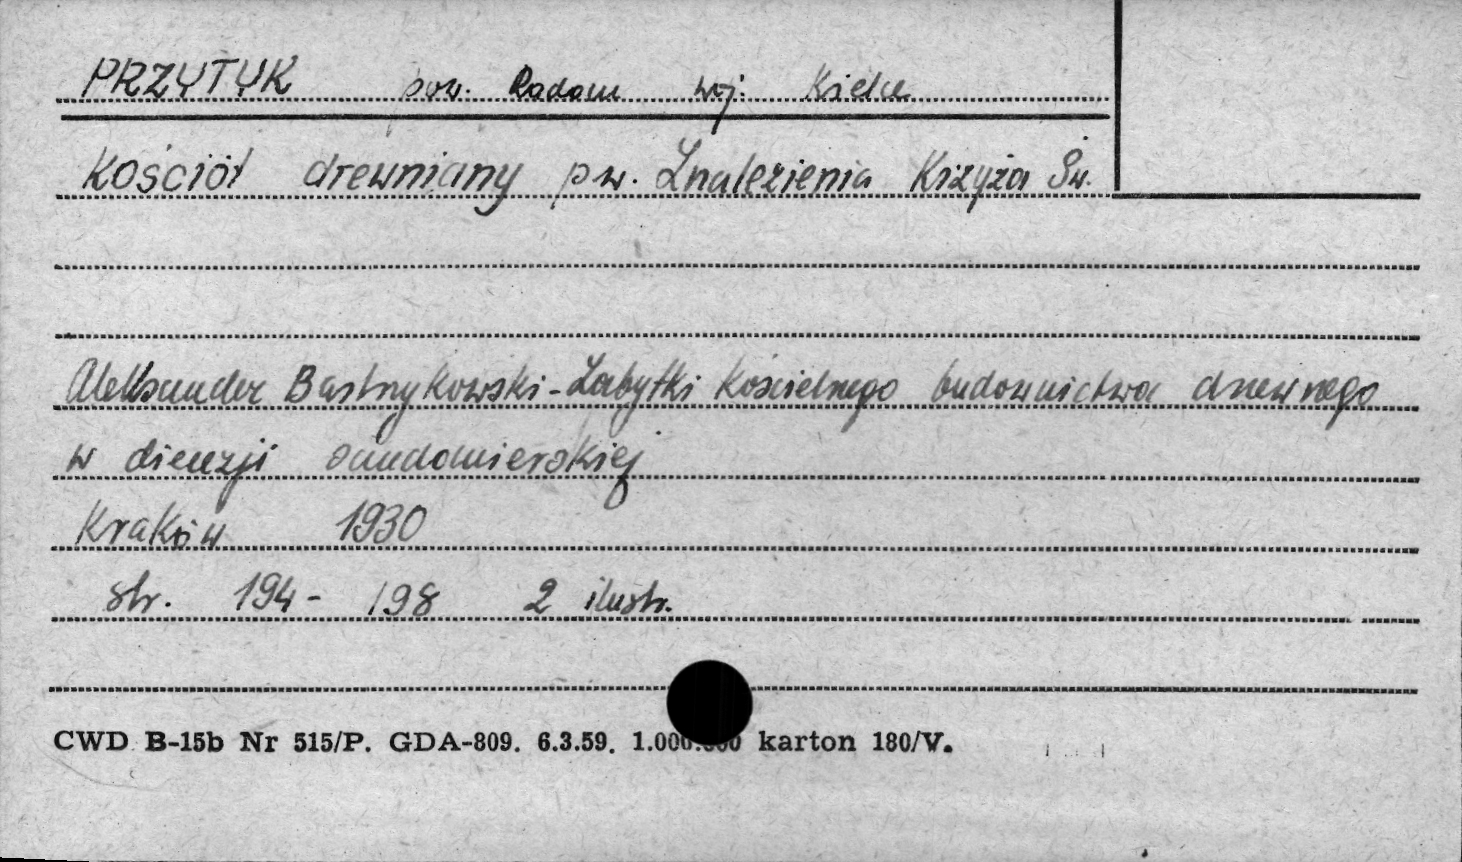 PRZYTYK pow. Radom woj. Kielce
Kościół drewniany pw. Znalezienia Krzyża Św.
Aleksander Bastrzykowski - Zabytki kościelnego budownictwa drzewnego
w diecezji sandomierskiej
Kraków 1930
str. 194 - 198 2 ilustr.
CWD B-15b Nr 515/P. GDA-809. 6.3.59. 1.000.000 karton 180/V.